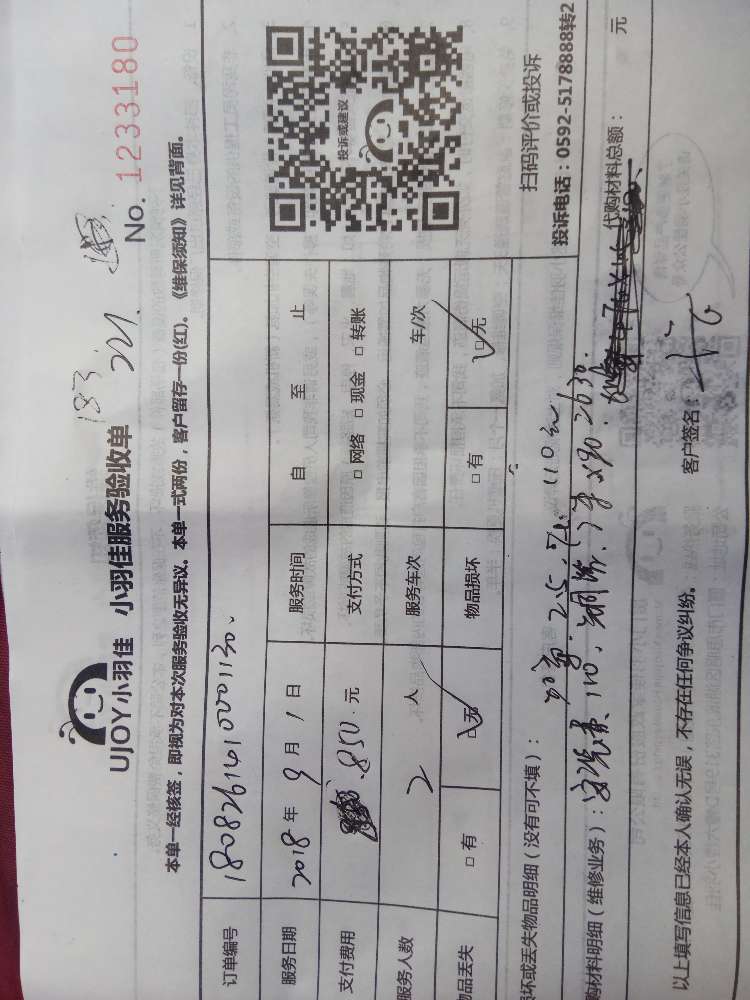 183.
221.
UJOY小羽佳 小羽佳服务验收单
No. 1233180
本单一经核签，即视为对本次服务验收无异议。本单一式两份，客户留存一份(红)。《维保须知》详见背面。
订单编号 1808261410001130.
服务日期 2018 年 9 月 1 日 服务时间 自 至 止
支付费用 850. 元 支付方式 □ 网络 □ 现金 □ 转账
服务人数 2 人 服务车次 车/次
物品丢失 □ 有 □ 无 物品损坏 □ 有 □ 无
投诉或建议
扫码评价或投诉
投诉电话：0592-5178888转2
损坏或丢失物品明细（没有可不填）：
2.5. 110元,
购材料明细（维修业务）： 110, 铜管. 7米×90. 2630.
代购材料总额： 元
以上填写信息已经本人确认无误，不存在任何争议纠纷。 客户签名：